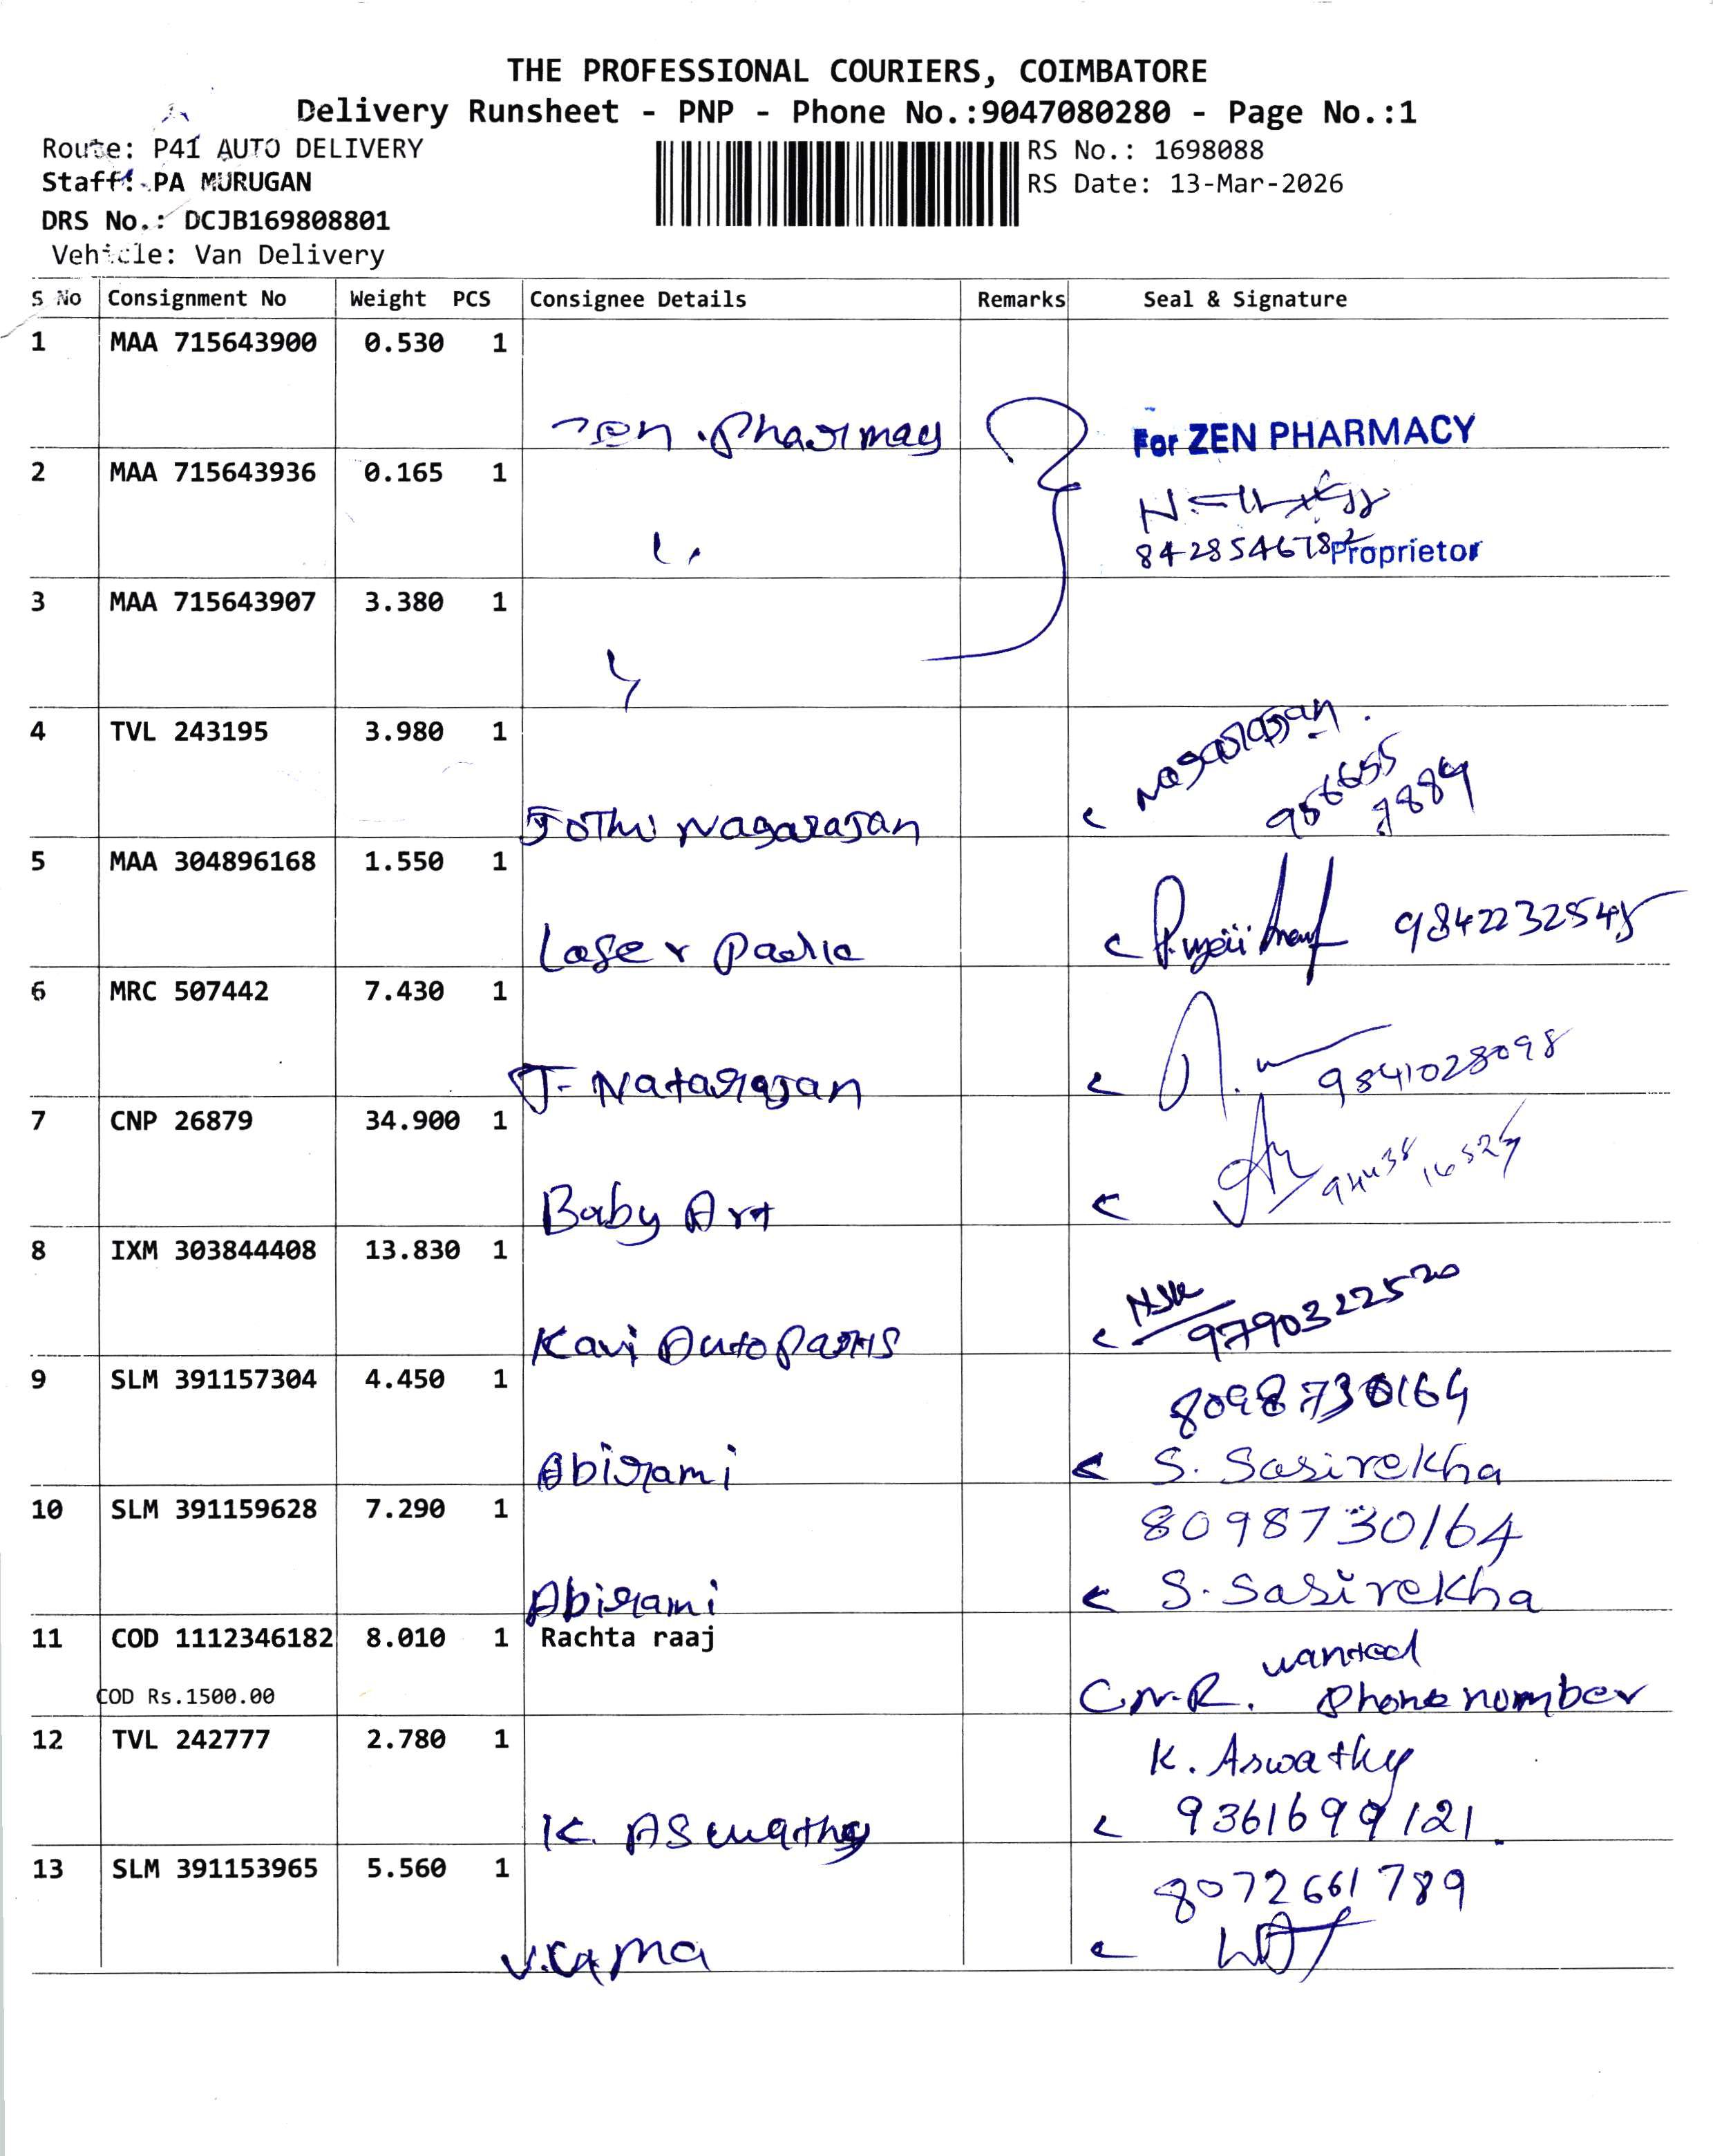 THE PROFESSIONAL COURIERS, COIMBATORE
Delivery Runsheet - PNP - Phone No.:9047080280 - Page No.:1
Route: P41 AUTO DELIVERY
RS No.: 1698088
Staff: PA MURUGAN
RS Date: 13-Mar-2026
DRS No.: DCJB169808801
Vehicle: Van Delivery
S No Consignment No Weight PCS Consignee Details Remarks Seal & Signature
1 MAA 715643900 0.530 1
Zen Pharmacy For ZEN PHARMACY
2 MAA 715643936 0.165 1
8428546782 Proprietor
3 MAA 715643907 3.380 1
4 TVL 243195 3.980 1
Nagarajan.
956655
7884
Jothi Nagarajan
5 MAA 304896168 1.550 1
9842232545
Laser
6 MRC 507442 7.430 1
J. Natarajan 9841028098
7 CNP 26879 34.900 1
Baby Art
8 IXM 303844408 13.830 1
Kavi Auto Parts 9790322520
9 SLM 391157304 4.450 1
8098730164
Abirami S. Sasirekha
10 SLM 391159628 7.290 1
8098730164
Abirami S. Sasirekha
11 COD 1112346182 8.010 1 Rachta raaj
wanted
COD Rs.1500.00 C.N.R. Phone nomber
12 TVL 242777 2.780 1
K. Aswathy
K. Aswathy 9361699121.
13 SLM 391153965 5.560 1
8072661789